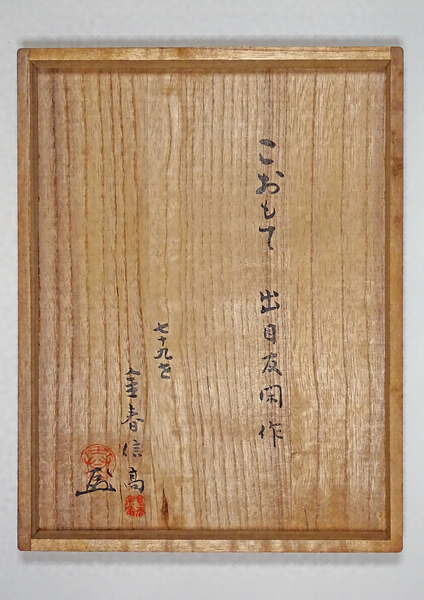 こおもて 出目友閑作
七十九老
金春信高